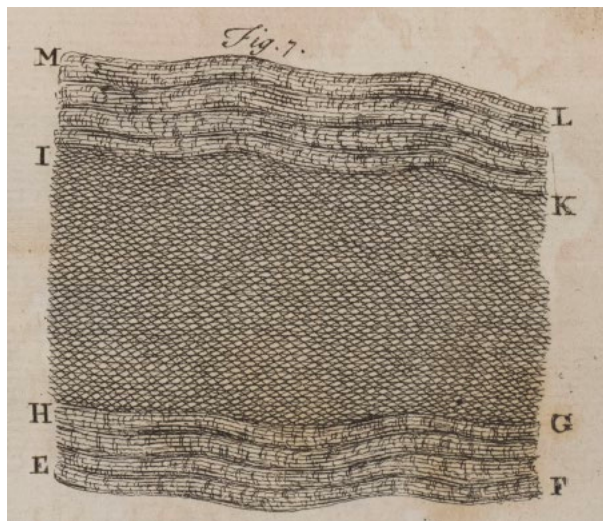 Fig. 7.
M
L
I
K
H
G
E
F